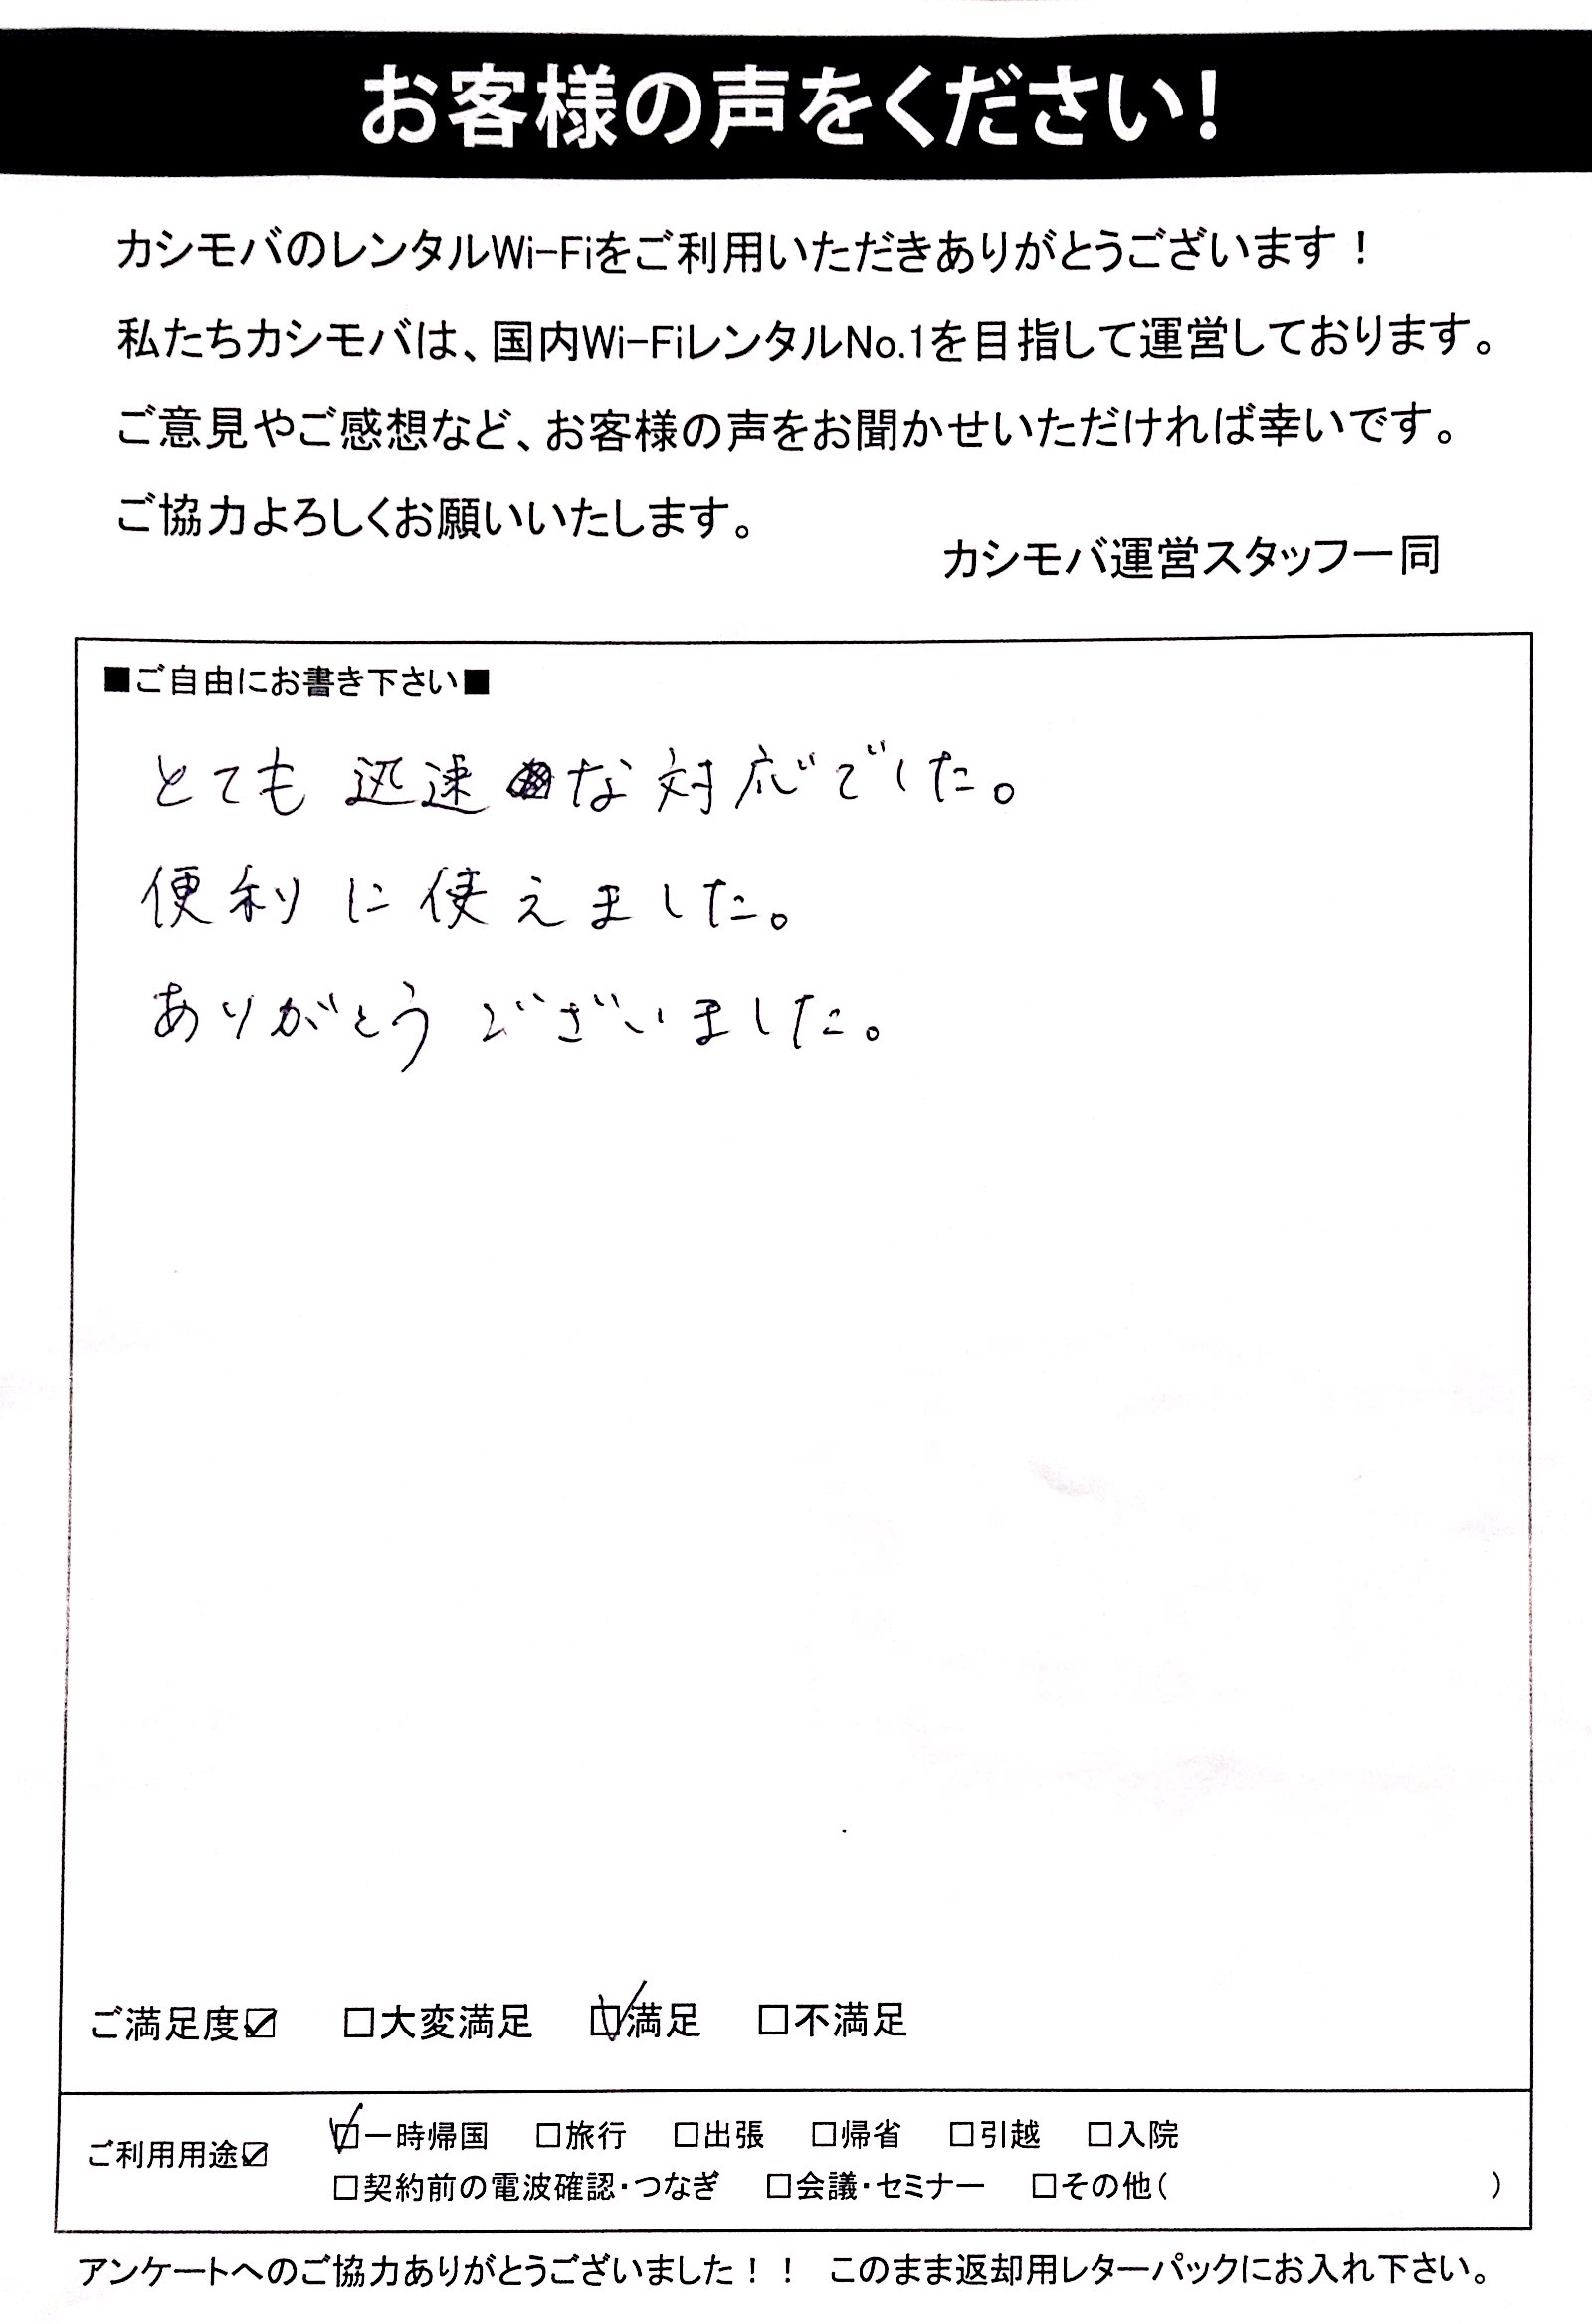 お客様の声をください!
カシモバのレンタルWi-Fiをご利用いただきありがとうございます！
私たちカシモバは、国内Wi-FiレンタルNo.1を目指して運営しております。
ご意見やご感想など、お客様の声をお聞かせいただければ幸いです。
ご協力よろしくお願いいたします。
カシモバ運営スタッフ一同
■ご自由にお書き下さい■
とても迅速な対応でした。
便利に使えました。
ありがとうございました。
ご満足度☑ □大変満足 ☑満足 □不満足
ご利用用途☑ ☑一時帰国 □旅行 □出張 □帰省 □引越 □入院
□契約前の電波確認・つなぎ □会議・セミナー □その他( )
アンケートへのご協力ありがとうございました！！ このまま返却用レターパックにお入れ下さい。